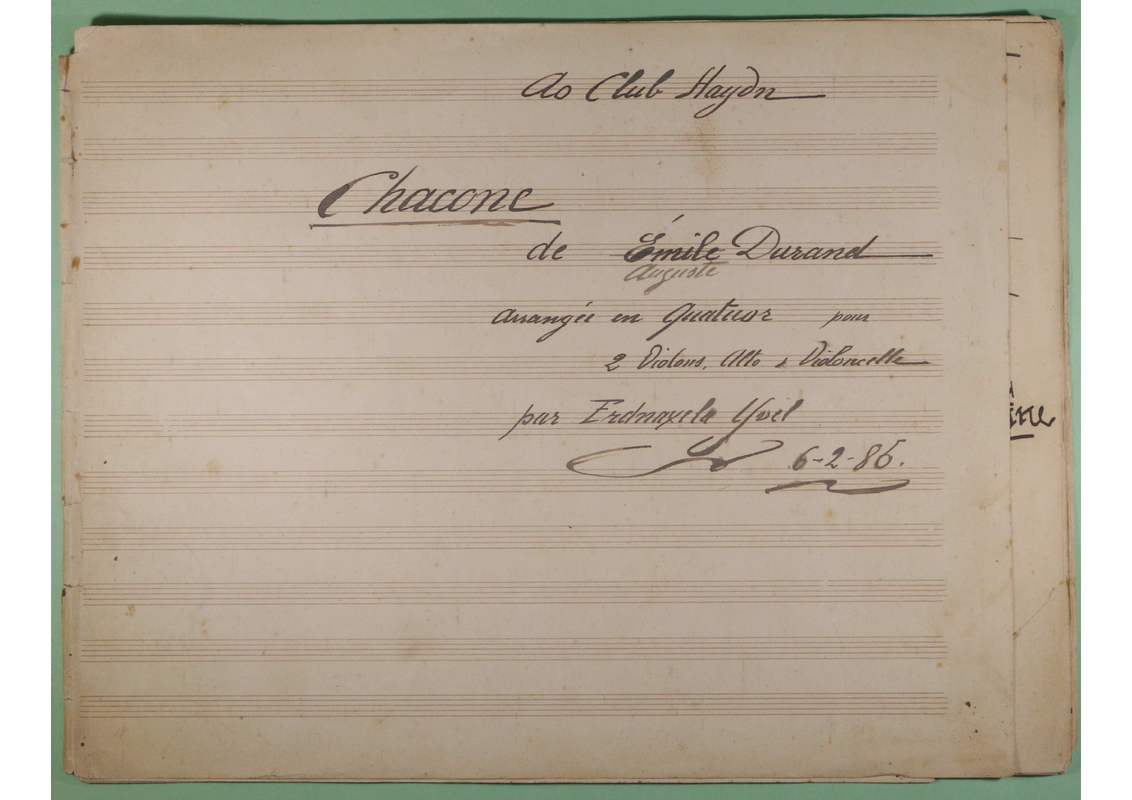 Ao Club Haydn
Chacone
de Émile Durand
Auguste
Arrangée en Quatuor pour
2 Violons, Alto & Violoncelle
par Erdnaxela Yvel
6-2-86.